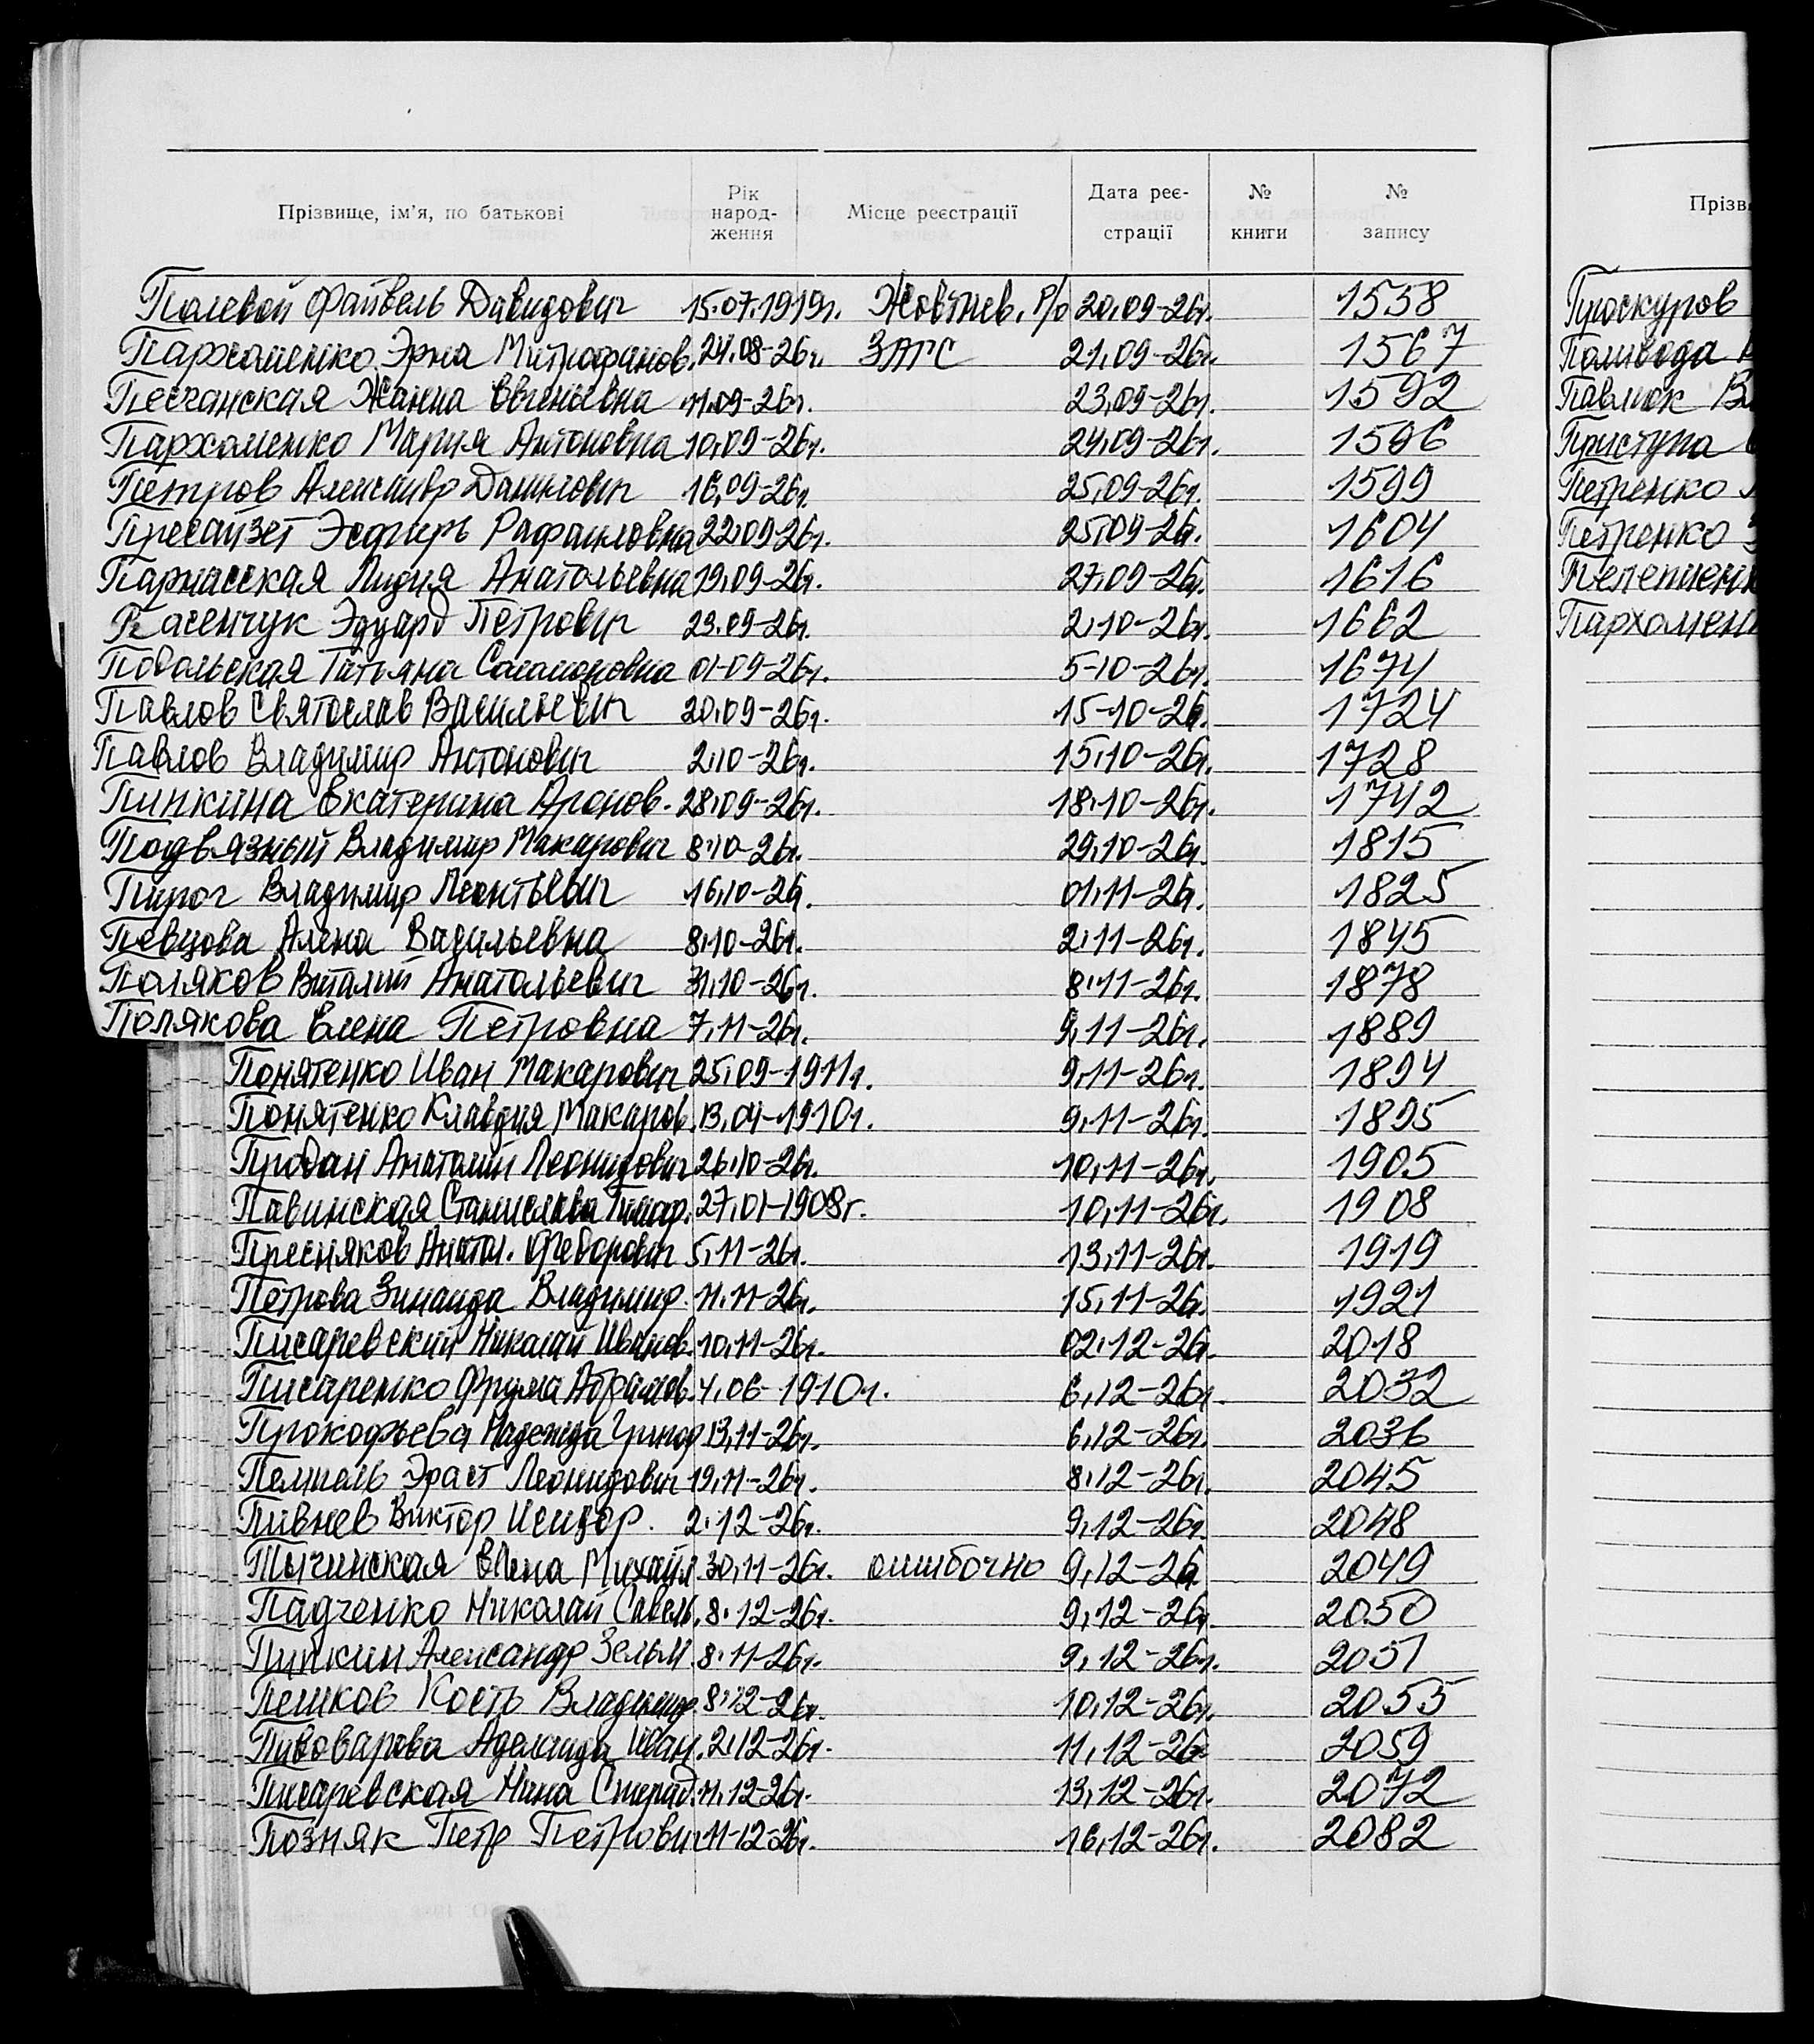 Прізвище, ім'я, по батькові Рік народ-ження Місце реєстрації Дата реє-страції № книги № запису
Полевой Файвель Давидович 15.07.1919г. Жовтнев. р/о 20.09-26г. 1558
Пархоменко Эрна Митрофанов. 24.08-26г. ЗАГС 21.09-26г. 1567
Песчанская Жанна Евгеньевна 11.09-26г. 23.09-26г. 1592
Пархоменко Мария Антоновна 10.09-26г. 24.09-26г. 1596
Петров Александр Данилович 16.09-26г. 25.09-26г. 1599
Пресайзет Эсфирь Рафаиловна 22.09-26г. 25.09-26г. 1604
Парнасская Лидия Анатольевна 19.09-26г. 27.09-26г. 1616
Пасенчук Эдуард Петрович 23.09-26г. 2.10-26г. 1662
Подольская Татьяна Саламоновна 01-09-26г. 5-10-26г. 1674
Павлов Святослав Васильевич 20.09-26г. 15-10-26г. 1724
Павлов Владимир Антонович 2.10-26г. 15.10-26г. 1728
Пипкина Екатерина Аронов. 28.09-26г. 18.10-26г. 1742
Подвязный Владимир Макарович 8.10-26г. 29.10-26г. 1815
Пирог Владимир Леонтьевич 16.10-26г. 01.11-26г. 1825
Певцова Алена Васильевна 8.10-26г. 2.11-26г. 1845
Поляков Виталий Анатольевич 31.10-26г. 8.11-26г. 1878
Полякова Елена Петровна 7.11-26г. 9.11-26г. 1889
Понятенко Иван Макарович 25.09-1911г. 9.11-26г. 1894
Понятенко Клавдия Макаров. 13.04-1910г. 9.11-26г. 1895
Продан Анатолий Леонидович 26.10-26г. 10.11-26г. 1905
Павинская Станислава 27.01-1908г. 10.11-26г. 1908
Пресняков Анатол. Федорович 5.11-26г. 13.11-26г. 1919
Петрова Зинаида Владимир. 11.11-26г. 15.11-26г. 1921
Писаревский Николай Иванов. 10.11-26г. 02.12-26г. 2018
Писаренко Фрума Абрамов. 4.06-1910г. 6.12-26г. 2032
Прокофьева Надежда Григор. 13.11-26г. 6.12-26г. 2036
Пемпель Эраст Леонидович 19.11-26г. 8.12-26г. 2045
Пивнев Виктор Исидор. 2.12-26г. 9.12-26г. 2048
Тычинская Елена Михайл. 30.11-26г. ошибочно 9.12-26 2049
Падченко Николай Савель. 8.12-26г. 9.12-26г. 2050
Пипкин Александр Зельм. 8.11-26г. 9.12-26г. 2051
Пешков Кость Владимир. 8.12-26г. 10.12-26г. 2055
Пивоварова Аделаида Иван. 2.12-26г. 11.12-26г. 2059
Писаревская Нина Спирид. 11.12-26г. 13.12-26г. 2072
Позняк Петр Петрович 11-12-26г. 16.12-26г. 2082
Прізв
Проскуров
Поливода
Павлюк В
Приступа
Петренко
Петренко
Пелепченк
Пархомен